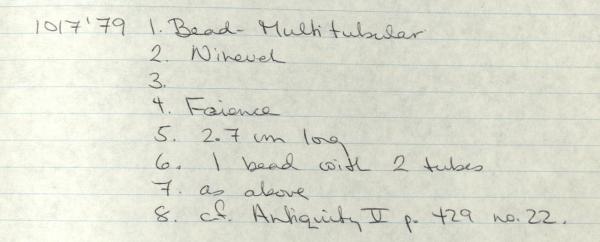 1017'79 1. Bead - Multitubular
2. Nineveh
3.
4. Faience
5. 2.7 cm long
6. 1 bead with 2 tubes
7. as above
8. cf. Antiquity V p. 429 no. 22.